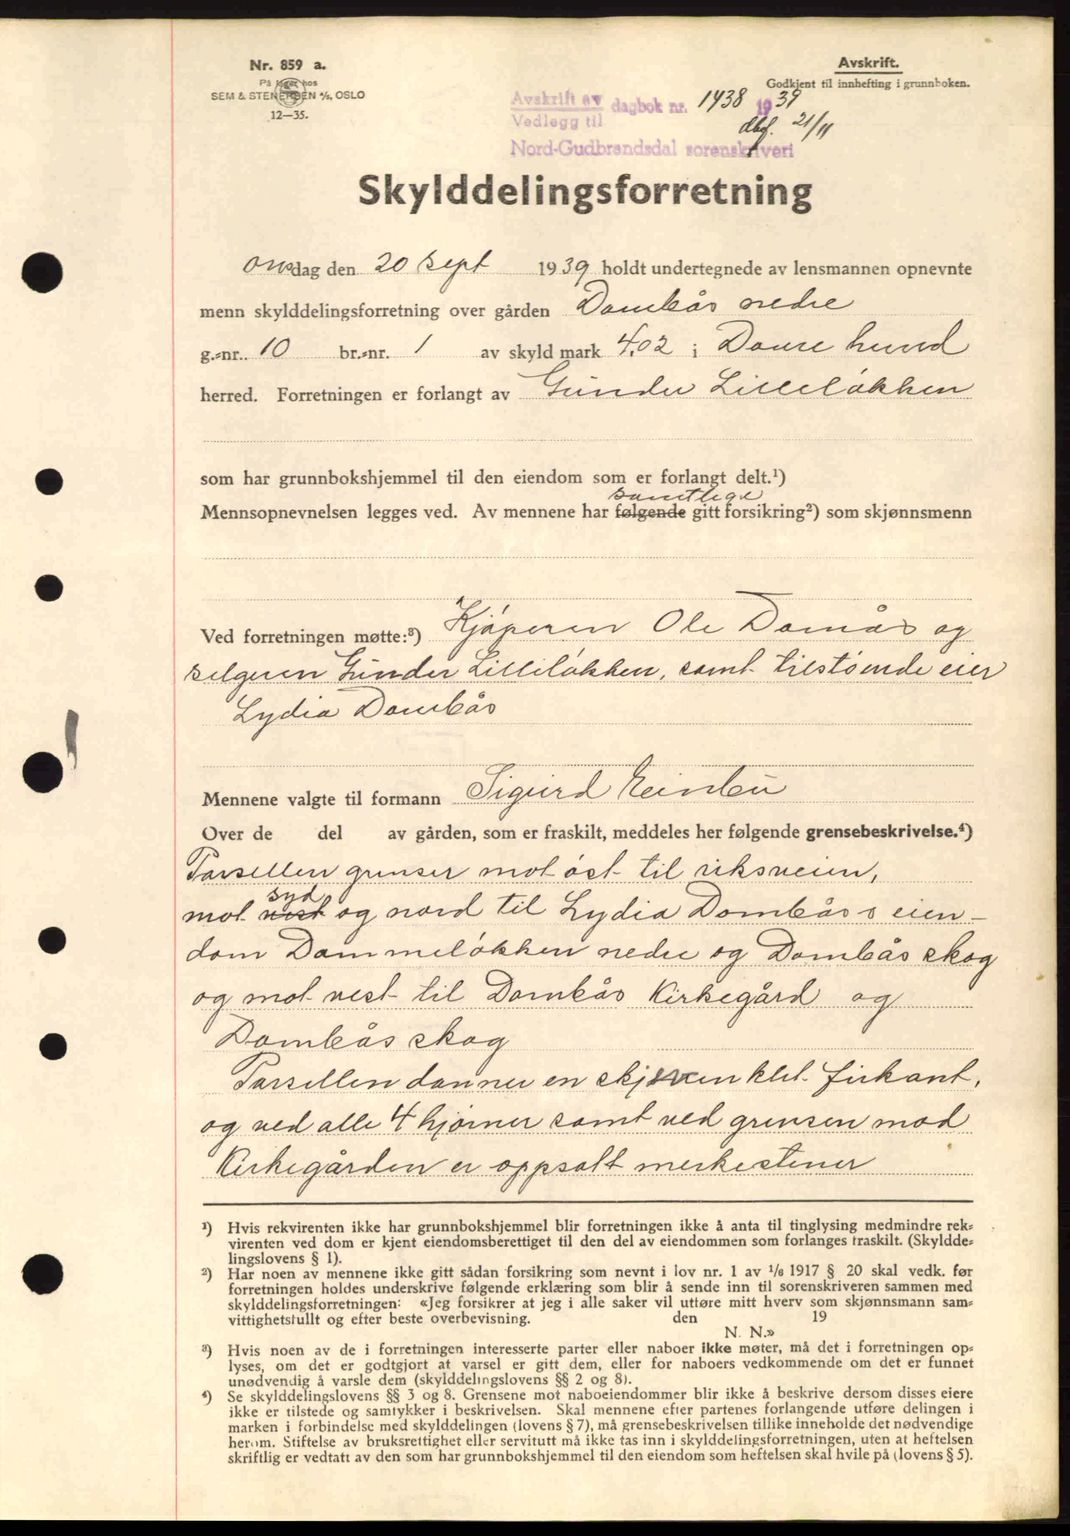 Nr. 859 a.
På lager hos
SEM & STENERSEN A/S, OSLO
12—35.
Avskrift.
Godkjent til innhefting i grunnboken.
Avskrift av
Vedlegg til
dagbok nr. 1438 1939
dbf. 21/11
Nord-Gudbrandsdal sorenskriveri
Skylddelingsforretning
Onsdag den 20 sept 1939 holdt undertegnede av lensmannen opnevnte
menn skylddelingsforretning over gården Dombås nedre
g.=nr. 10 br.=nr. 1 av skyld mark 4,02 i Dovre herred
herred. Forretningen er forlangt av Gunder Lilleløkken
som har grunnbokshjemmel til den eiendom som er forlangt delt.¹)
samtlige
Mennsopnevnelsen legges ved. Av mennene har følgende gitt forsikring²) som skjønnsmenn
Ved forretningen møtte:³) Kjøperen Ole Domås og
selgeren Gunder Lilleløkken, samt tilstøtende eier
Lydia Dombås
Mennene valgte til formann Sigurd Einbu
Over de del av gården, som er fraskilt, meddeles her følgende grensebeskrivelse.⁴)
Parsellen grenser mot øst til riksveien,
syd
mot vest og nord til Lydia Dombås s eien-
dom Dammeløkken nedre og Dombås skog
og mot vest til Dombås Kirkegård og
Dombås skog
Parsellen danner en skjevvinklet firkant,
og ved alle 4 hjørner samt ved grensen mod
Kirkegården er oppsatt merkestener
¹) Hvis rekvirenten ikke har grunnbokshjemmel blir forretningen ikke å anta til tinglysing medmindre rek=
virenten ved dom er kjent eiendomsberettiget til den del av eiendommen som forlanges fraskilt. (Skyldde=
lingslovens § 1).
²) Har noen av mennene ikke gitt sådan forsikring som nevnt i lov nr. 1 av 1/6 1917 § 20 skal vedk. før
forretningen holdes underskrive følgende erklæring som blir å sende inn til sorenskriveren sammen med
skylddelingsforretningen: «Jeg forsikrer at jeg i alle saker vil utføre mitt hverv som skjønnsmann sam=
vittighetsfullt og efter beste overbevisning. den 19
N. N.»
³) Hvis noen av de i forretningen interesserte parter eller naboer ikke møter, må det i forretningen op=
lyses, om det er godtgjort at varsel er gitt dem, eller for naboers vedkommende om det er funnet
unødvendig å varsle dem (skylddelingslovens §§ 2 og 8).
⁴) Se skylddelingslovens §§ 3 og 8. Grensene mot naboeiendommer blir ikke å beskrive dersom disses eiere
ikke er tilstede og samtykker i beskrivelsen. Skal mennene efter partenes forlangende utføre delingen i
marken i forbindelse med skylddelingen (lovens § 7), må grensebeskrivelsen tillike inneholde det nødvendige
herom. Stiftelse av bruksrettighet eller servitutt må ikke tas inn i skylddelingsforretningen, uten at heftelsen
skriftlig er vedtatt av den som har grunnbokshjemmel til den eiendom som heftelsen skal hvile på (lovens § 5).